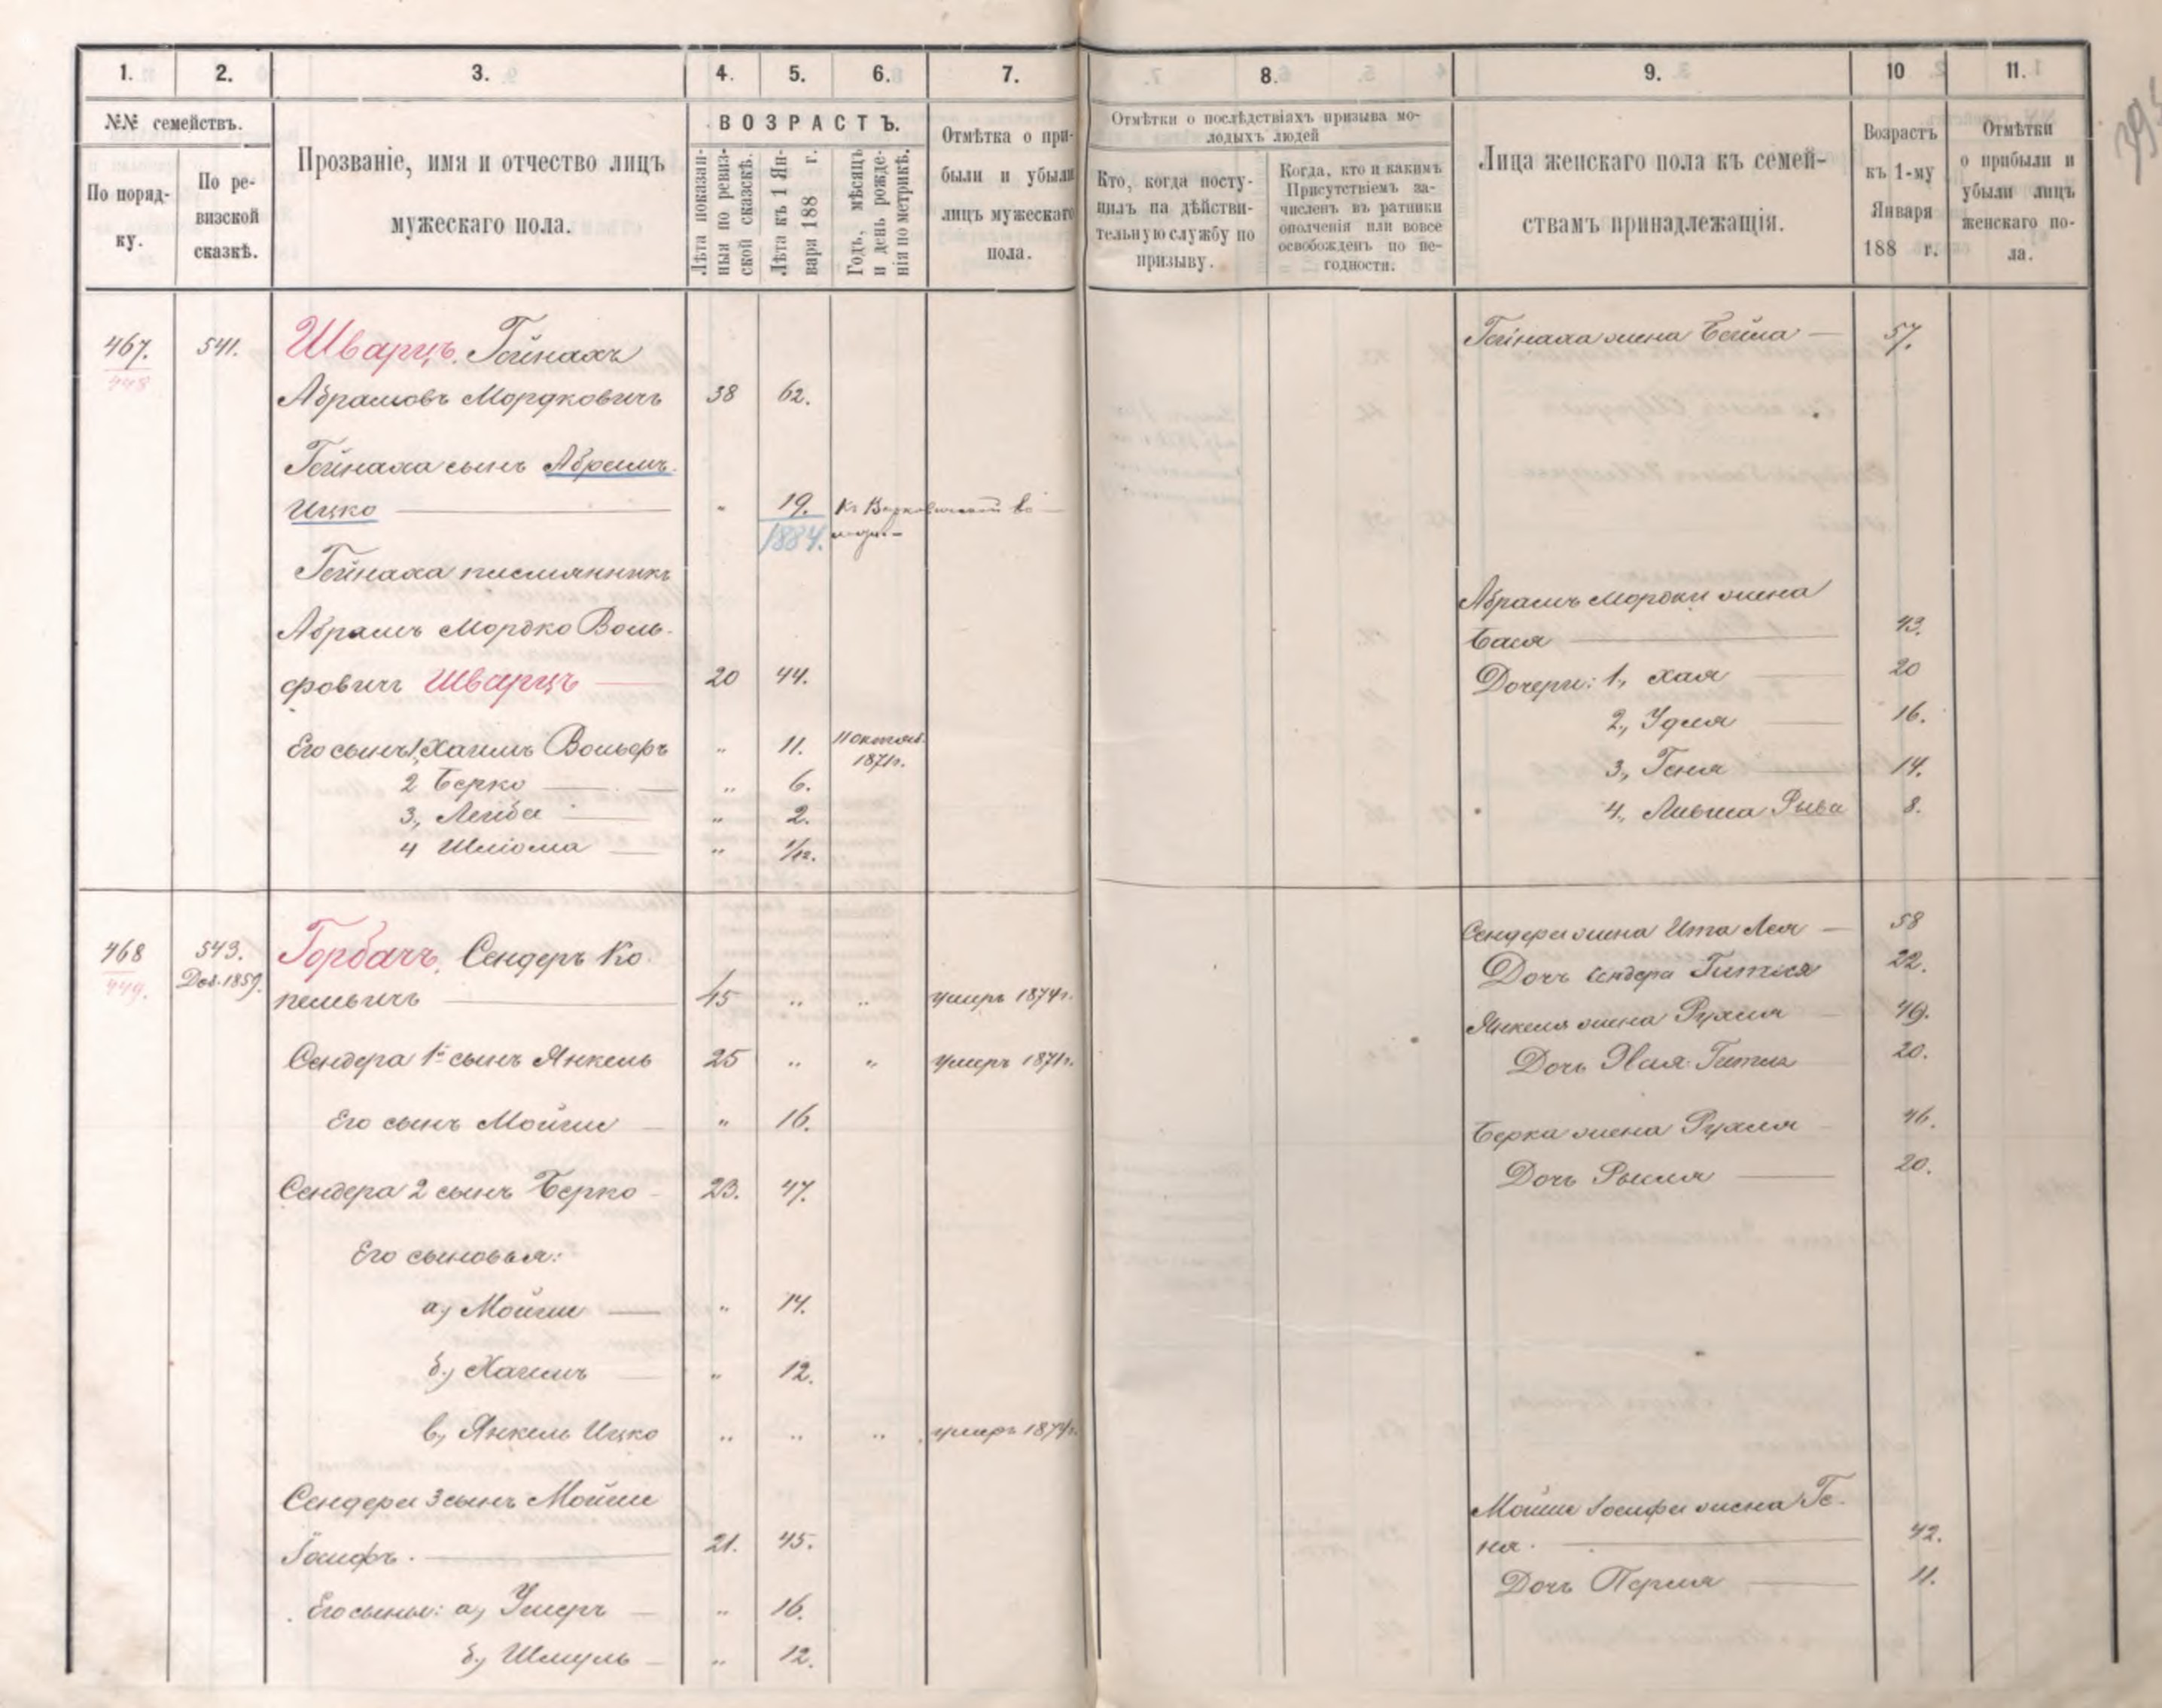 1. 2. 3. 4. 5. 6. 7. 8. 9. 10 11.
№№ семействъ.
По поряд-
ку.
По ре-
визской
сказкѣ.
Прозваніе, имя и отчество лицъ
мужескаго пола.
ВОЗРАСТЪ.
Лѣта показан-
ныя по ревиз-
ской сказкѣ.
Лѣта къ 1 Ян-
варя 188 г.
Годъ, мѣсяцъ
и день рожде-
нія по метрикѣ.
Отмѣтка о при-
были и убыли
лицъ мужескаго
пола.
Отмѣтки о послѣдствіяхъ призыва мо-
лодыхъ людей
Кто, когда посту-
пилъ на дѣйстви-
тельную службу по
призыву.
Когда, кто и какимъ
Присутствіемъ за-
численъ въ ратники
ополченія или вовсе
освобожденъ по не-
годности.
Лица женскаго пола къ семей-
ствамъ принадлежащія.
Возрастъ
къ 1-му
Января
188 г.
Отмѣтки
о прибыли и
убыли лицъ
женскаго по-
ла.
467. 541. Шварцъ, Гейнахъ
448
Абрамовъ Мордковичъ 38 62.
Гейнаха сынъ Абрамъ
Ицко " 19.
1884.
Гейнаха племянникъ
Абрамъ Мордко Воль-
фовичъ Шварцъ 20 44.
Его сынъ 1, Хаимъ Вольфъ " 11. 11 октяб.
1871г.
2 Берко " 6.
3, Лейба " 2.
4 Шліома " 1/12.
Гейнаха жена Бейла 57.
Абрамъ Мордки жена
Бася 43.
Дочери: 1, Хая 20
2, Удля 16.
3, Геня 14.
4, Рыва 8.
468 543. Горбачъ, Сендеръ Ко-
449. Доб. 1859.
пельвичъ 45 " " умеръ 1874г.
Сендера 1й сынъ Янкель 25 " " умеръ 1871г.
Его сынъ Мойше " 16.
Сендера 2 сынъ Берко 23. 47.
Его сыновья:
а, Мойше " 14.
б, Хаимъ " 12.
в, Янкель Ицко " " " умеръ 187
Сендера 3 сынъ Мойше
Іосифъ 21. 45.
Его сынъя: а, Ушеръ " 16.
б, Шмуль " 12.
Сендера жена Ита Лея 58
Дочь Сендера Гитля 22.
Янкеля жена Рухля 49.
Дочь Хая Гитля 20.
Берка жена Рухля 46.
Дочь Рыля 20.
Мойше Іосифа жена Ге-
ня 42.
Дочь Перля 11.